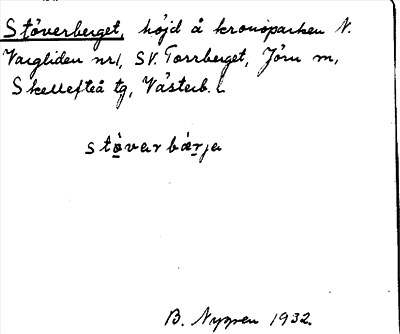 Stöverberget, höjd å kronoparken N.
Vargliden nr 1, SV. Torrberget, Jörn sn,
Skellefteå tg, Västerb. L.
stö̱varbär̯ja
B. Nyssen 1932.